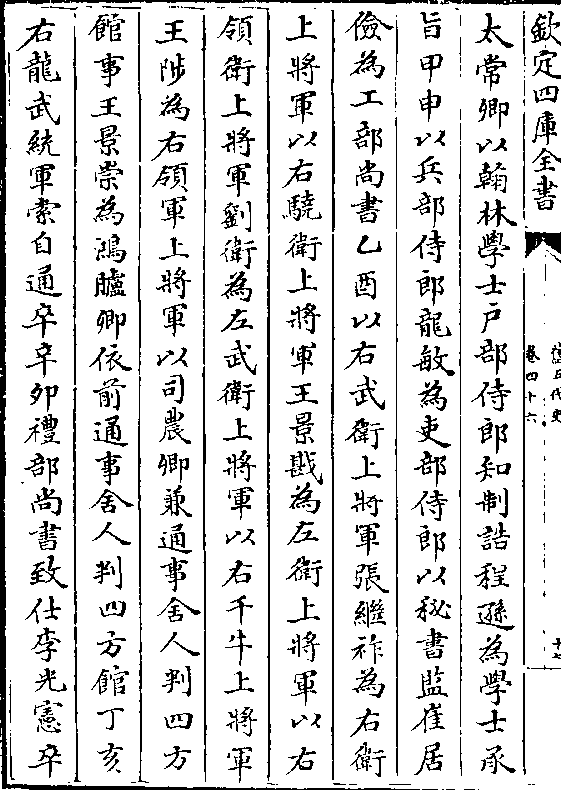 欽定四庫全書
舊五代史
卷四十六
十七
太常卿以翰林學士户部侍郎知制誥程遜為學士承
旨甲申以兵部侍郎龍敏為吏部侍郎以秘書監崔居
儉為工部尚書乙酉以右武衛上將軍張繼祚為右衛
上將軍以右驍衛上將軍王景戡為左衛上將軍以右
領衛上將軍劉衛為左武衛上將軍以右千牛上將軍
王陟為右領軍上將軍以司農卿兼通事舍人判四方
館事王景崇為鴻臚卿依前通事舍人判四方館丁亥
右龍武統軍索自通卒辛卯禮部尚書致仕李光憲卒